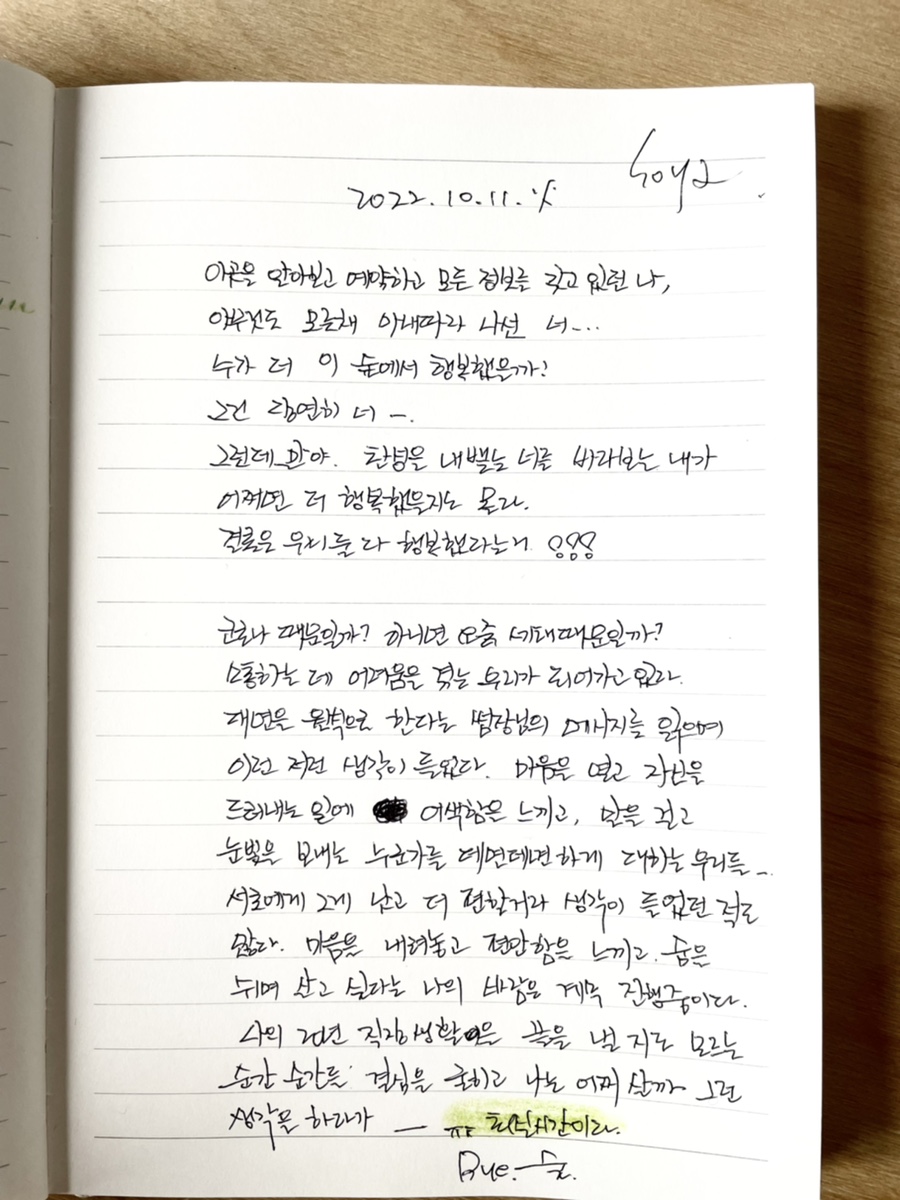 Soya
2022.10.11.火
이곳을 알아보고 예약하고 모든 정보를 갖고 있던 나,
아무것도 모른채 아내따라 나선 너...
누가 더 이 숲에서 행복했을까?
그건 당연히 너 -.
그런데 말야. 탄성을 내뱉는 너를 바라보는 내가
어쩌면 더 행복했을지도 몰라.
결론은 우리 둘 다 행복했다는거
코로나 때문일까? 아니면 요즘 세태때문일까?
소통하는 데 어려움을 겪는 우리가 되어가고 있다.
대면을 원칙으로 한다는 쌤장님의 메시지를 읽으며
이런 저런 생각이 들었다. 마음을 열고 자신을
드러내는 일에 어색함을 느끼고, 말을 걸고
눈빛을 보내는 누군가를 데면데면하게 대하는 우리들 -
서로에게 그게 낫고 더 편할거라 생각이 들었던 적도
많다. 마음을 내려놓고 편안함을 느끼고 숨을
쉬며 살고 싶다는 나의 바람은 계속 진행중이다.
나의 20년 직장생활은 끝을 낼 지도 모르는
순간 순간들 결심을 굳히고 나는 어찌 살까 그런
생각을 하다가 — 퇴실시간이다.
Bye.